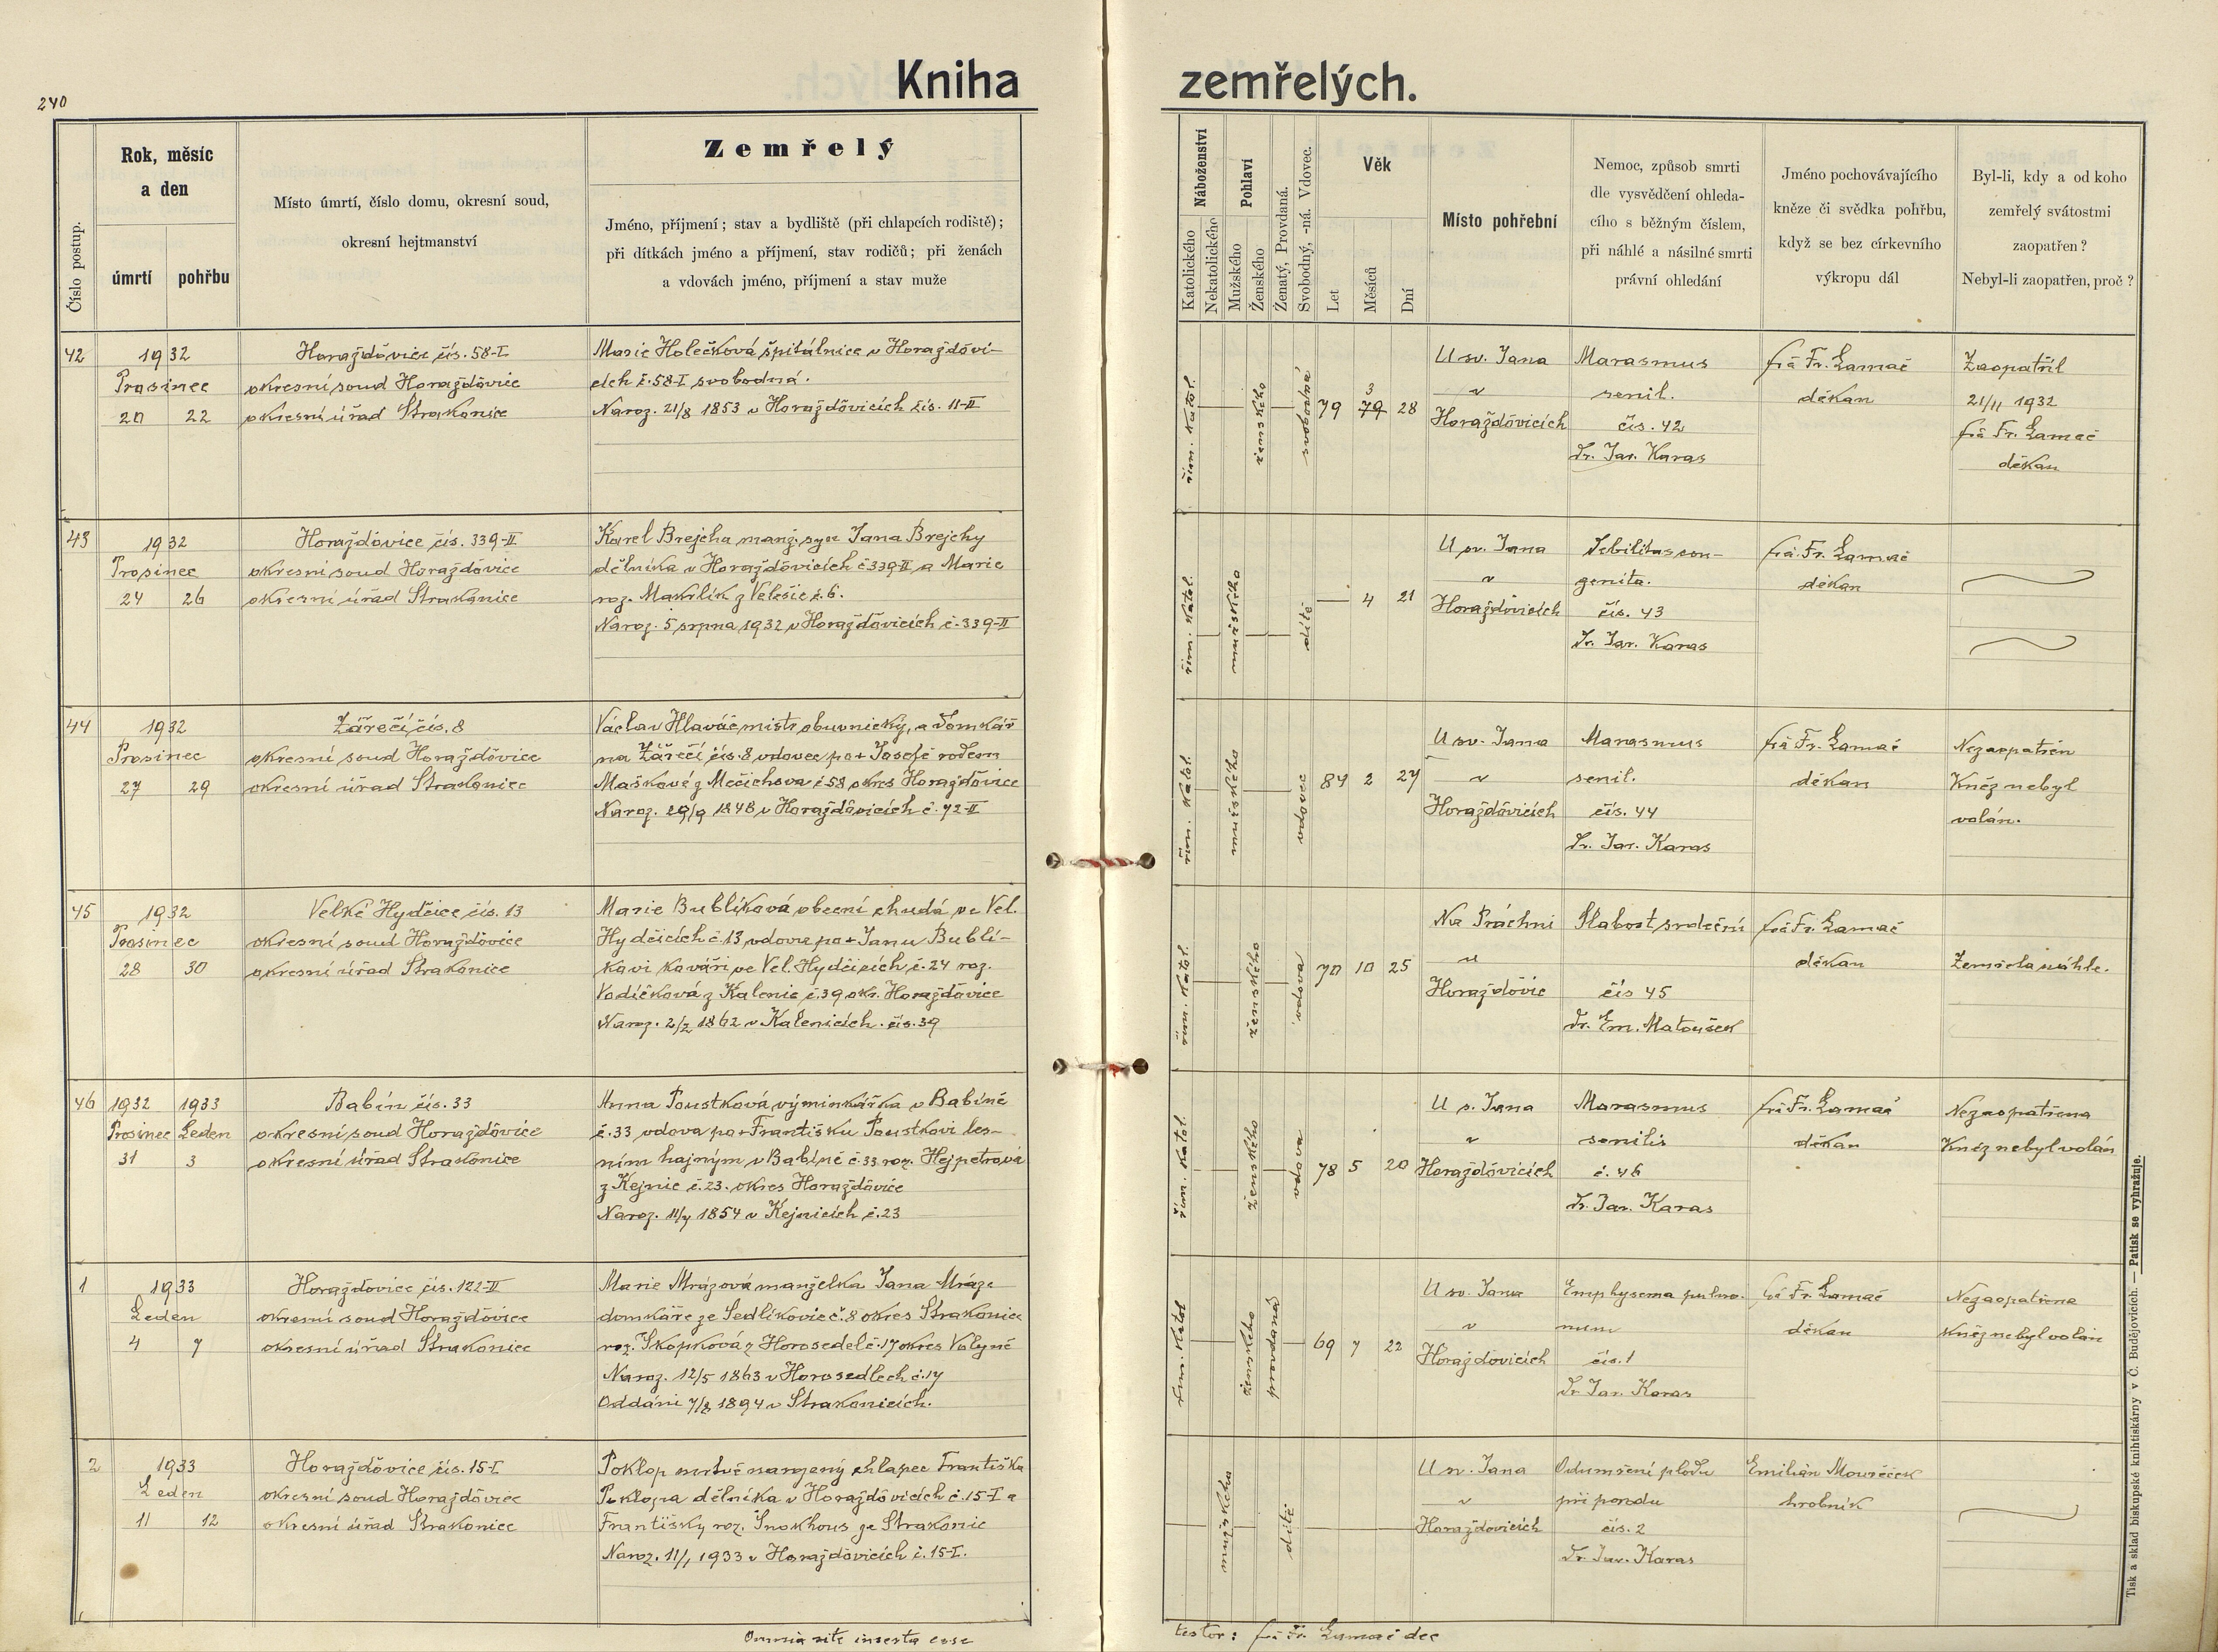 240
Kniha zemřelých.
Číslo postup.
Rok, měsíc
a den
úmrtí
pohřbu
Místo úmrtí, číslo domu, okresní soud,
okresní hejtmanství
Zemřelý
Jméno, příjmení; stav a bydliště (při chlapcích rodiště);
při dítkách jméno a příjmení, stav rodičů; při ženách
a vdovách jméno, příjmení a stav muže
Náboženství
Katolického
Nekatolického
Pohlaví
Mužského
Ženského
Ženatý, Provdaná.
Svobodný, -ná. Vdovec.
Věk
Let
Měsíců
Dní
Místo pohřební
Nemoc, způsob smrti
dle vysvědčení ohleda-
cího s běžným číslem,
při náhlé a násilné smrti
právní ohledání
Jméno pochovávajícího
kněze či svědka pohřbu,
když se bez církevního
výkropu dál
Byl-li, kdy a od koho
zemřelý svátostmi
zaopatřen?
Nebyl-li zaopatřen, proč?
42
1932
Prosinec
20 22
Horažďovice čís. 58-I
okresní soud Horažďovice
okresní úřad Strakonice
Marie Holečková špitálnice v Horažďovi-
cích č. 58-I svobodná.
Naroz. 21/8 1853 v Horažďovicích čís. 11-II
řím. katol.
ženského
svobodná
79 3 79 28
U sv. Jana
v
Horažďovicích
Marasmus
senil.
čís. 42
Dr. Jar. Karas
frá Fr. Lamač
děkan
Zaopatřil
21/11 1932
frá Fr. Lamač
děkan
43
1932
Prosinec
24 26
Horažďovice čís. 339-II
okresní soud Horažďovice
okresní úřad Strakonice
Karel Brejcha manž. syn Jana Brejchy
dělníka v Horažďovicích č 339-II a Marie
roz. Makrlík z Velešic č. 6.
Naroz. 5 srpna 1932 v Horažďovicích č. 339-II
řím. katol.
mužského
dítě
— 4 21
U sv. Jana
v
Horažďovicích
Debilitas con-
genita.
čís. 43
Dr. Jar. Karas
frá. Fr. Lamač
děkan
44
1932
Prosinec
27 29
Zářečí čís. 8
okresní soud Horažďovice
okresní úřad Strakonice
Václav Hlaváč mistr obuvnický, a domkář
na Zářečí čís. 8 vdovec po + Josefě rodem
Maškové z Mečichova č 58 okres Horažďovice
Naroz. 29/9 1848 v Horažďovicích č. 72-II
řím. katol.
mužského
vdovec
84 2 27
U sv. Jana
v
Horažďovicích
Marasmus
senil.
čís. 44
Dr. Jar. Karas
frá Fr. Lamač
děkan
Nezaopatřen
Kněz nebyl
volán.
45
1932
Prosinec
28 30
Velké Hydčice čís. 13
okresní soud Horažďovice
okresní úřad Strakonice
Marie Bublíková obecní chudá ve Vel.
Hydčicích č. 13 vdova po + Janu Bublí-
kovi kováři ve Vel. Hydčicích č. 24 roz.
Vodičková z Kalenic č. 39 okr. Horažďovice
Naroz. 2/2 1862 v Kalenicích. čís. 39
řím. katol.
ženského
vdova
70 10 25
Na Práchni
u
Horažďovic
Slabost srdeční
čís 45
Dr. Em. Matoušek
frá Fr. Lamač
děkan
Zemřela náhle.
46
1932 1933
Prosinec Leden
31 3
Babín čís. 33
okresní soud Horažďovice
okresní úřad Strakonice
Anna Poustková výminkářka v Babíně
č. 33 vdova po + Františku Poustkovi les-
ním hajným v Babíně č. 33 roz. Hejpetrova
z Kejnic č. 23. okres Horažďovice
Naroz. 11/7 1854 v Kejnicích č. 23
řím. katol.
ženského
vdova
78 5 20
U s. Jana
v
Horažďovicích
Marasmus
senilis
č. 46
Dr. Jar. Karas
frá Fr. Lamač
děkan
Nezaopatřena
Kněz nebyl volán
1
1933
Leden
4 7
Horažďovice čís. 122-II
okresní soud Horažďovice
okresní úřad Strakonice
Marie Mrázová manželka Jana Mráze
domkáře ze Sedlíkovic č. 8 okres Strakonice
roz. Skopková z Horosedel č. 17 okres Volyně
Naroz. 12/5 1863 v Horosedlech č. 17
Oddáni 7/8 1894 v Strakonicích.
řím. katol
ženského
provdaná
69 7 22
U sv. Jana
v
Horažďovicích
Emphysema pulmo-
num
čís. 1
Dr Jar. Karas
frá Fr Lamač
děkan
Nezaopatřena
Kněz nebyl volán
2
1933
Leden
11 12
Horažďovice čís. 15-I
okresní soud Horažďovice
okresní úřad Strakonice
Poklop mrtvě narozený chlapec Františka
Poklopa dělníka v Horažďovicích č. 15-I a
Františky roz. Šnokhous ze Strakonic
Naroz. 11/1 1933 v Horažďovicích č. 15-I.
mužského
dítě
U sv. Jana
v
Horažďovicích
Odumření plodu
při porodu
čís. 2
Dr. Jar. Karas
Emilián Mouréček
hrobník
Omnia rite inserta esse
testor: frá Fr. Lamač dec
Tisk a sklad biskupské knihtiskárny v Č. Budějovicích. — Patisk se vyhražuje.